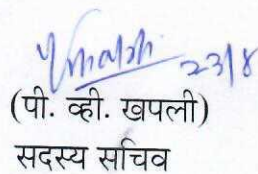 23/8
(पी. व्ही. खपली)
सदस्य सचिव